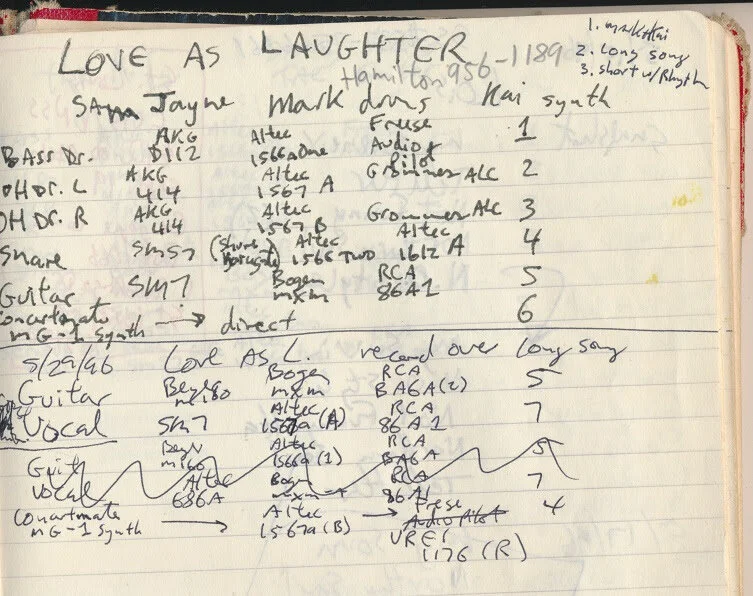 1. mark+Kai
2. Long song
3. short w/Rhyth
LOVE AS LAUGHTER
Hamilton 956-1189
SAM Jayne Mark drms Kai synth
BASS Dr. AKG D112 Altec 1566a One Freese Audio Pilot 1
OH Dr. L AKG 414 Altec 1567 A Grommes ALC 2
OH Dr. R AKG 414 Altec 1567 B Grommes ALC 3
Snare SM57 (Shure Altec 1566 TWO Altec 1612 A 4
Guitar SM7 Bogen mxm RCA 86A1 5
Concertmate MG-1 Synth → direct 6
5/29/96 Love As L. record over long song
Guitar Beyer m160 Bogen mxm RCA BA6A(2) 5
Vocal SM7 Altec 1567a (A) RCA 86A1 7
Guit Beyr m160 Altec 1566a (1) RCA BA6A 5
Vocal Altec 686A Bogn mxm-A RCA 86A1 7
Concertmate MG-1 Synth → Altec 1567a (B) → Frese Audio Pilot 4
UREI 1176 (R)